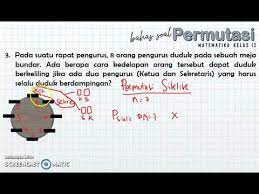 bahas soal Permutasi
MATEMATIKA KELAS 12
3. Pada suatu rapat pengurus, 8 orang pengurus duduk pada sebuah meja
bundar. Ada berapa cara kedelapan orang tersebut dapat duduk
berkeliling jika ada dua pengurus (Ketua dan Sekretaris) yang harus
selalu duduk berdampingan?
Permutasi Siklik
K S
n = 7
S K
P siklis n=7 X
RECORDED WITH
SCREENCAST MATIC